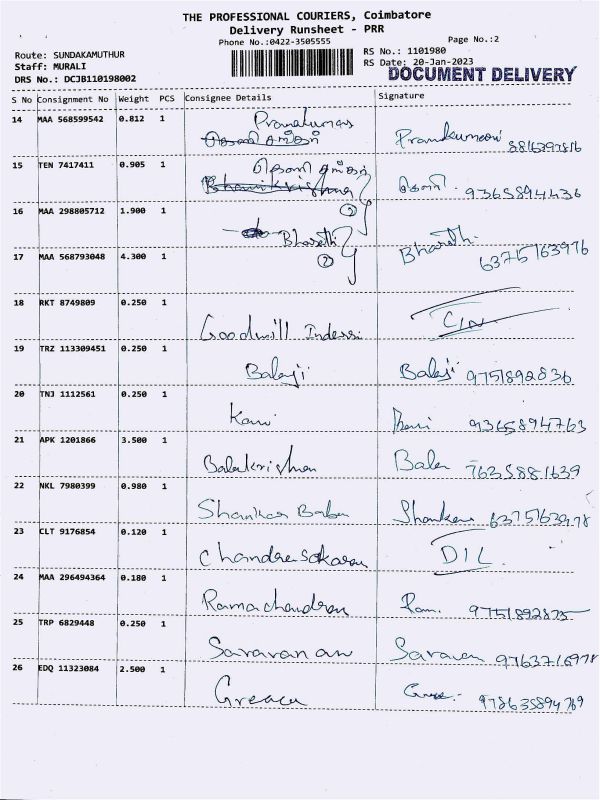 THE PROFESSIONAL COURIERS, Coimbatore
Delivery Runsheet - PRR
Phone No.:0422-3505555
Page No.:2
Route: SUNDAKAMUTHUR
RS No.: 1101980
Staff: MURALI
RS Date: 20-Jan-2023
DRS No.: DCJB110198002
DOCUMENT DELIVERY
S No Consignment No Weight PCS Consignee Details Signature
14 MAA 568599542 0.812 1
15 TEN 7417411 0.905 1 9365894436
16 MAA 298805712 1.900 1 Bharathi Bharathi
17 MAA 568793048 4.300 1 6375763976
18 RKT 8749809 0.250 1 Goodwill
19 TRZ 113309451 0.250 1 Balaji Balaji 9751892836
20 TNJ 1112561 0.250 1 9365894763
21 APK 1201866 3.500 1 Balakrishnan Bala 7635881639
22 NKL 7980399 0.980 1 Shankar Babu
23 CLT 9176854 0.120 1 Chandrasekaran
24 MAA 296494364 0.180 1 Ramachandran Ram.
25 TRP 6829448 0.250 1 Saravanan
26 EDQ 11323084 2.500 1